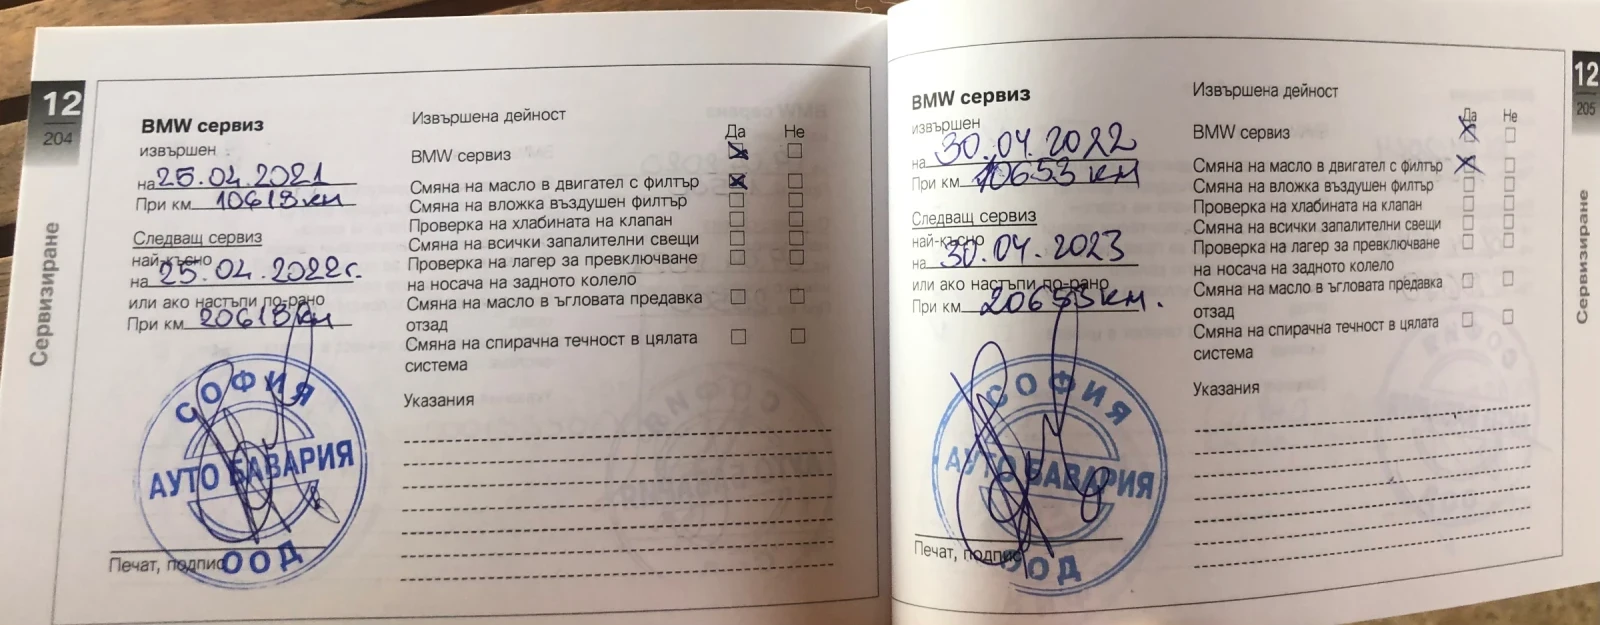 12
204
Сервизиране
BMW сервиз
извършен
на 25.04.2021
При км 10618 км
Следващ сервиз
най-късно
на 25.04.2022г.
или ако настъпи по-рано
При км 20618 км
СОФИЯ
АУТО БАВАРИЯ
ООД
Печат, подпис
Извършена дейност
Да Не
BMW сервиз
Смяна на масло в двигател с филтър
Смяна на вложка въздушен филтър
Проверка на хлабината на клапан
Смяна на всички запалителни свещи
Проверка на лагер за превключване
на носача на задното колело
Смяна на масло в ъгловата предавка
отзад
Смяна на спирачна течност в цялата
система
Указания
BMW сервиз
извършен
на 30.04.2022
При км 10653 км
Следващ сервиз
най-късно
на 30.04.2023
или ако настъпи по-рано
При км 20653 км.
СОФИЯ
АУТО БАВАРИЯ
ООД
Печат, подпис
Извършена дейност
Да Не
BMW сервиз
Смяна на масло в двигател с филтър
Смяна на вложка въздушен филтър
Проверка на хлабината на клапан
Смяна на всички запалителни свещи
Проверка на лагер за превключване
на носача на задното колело
Смяна на масло в ъгловата предавка
отзад
Смяна на спирачна течност в цялата
система
Указания
12
205
Сервизиране